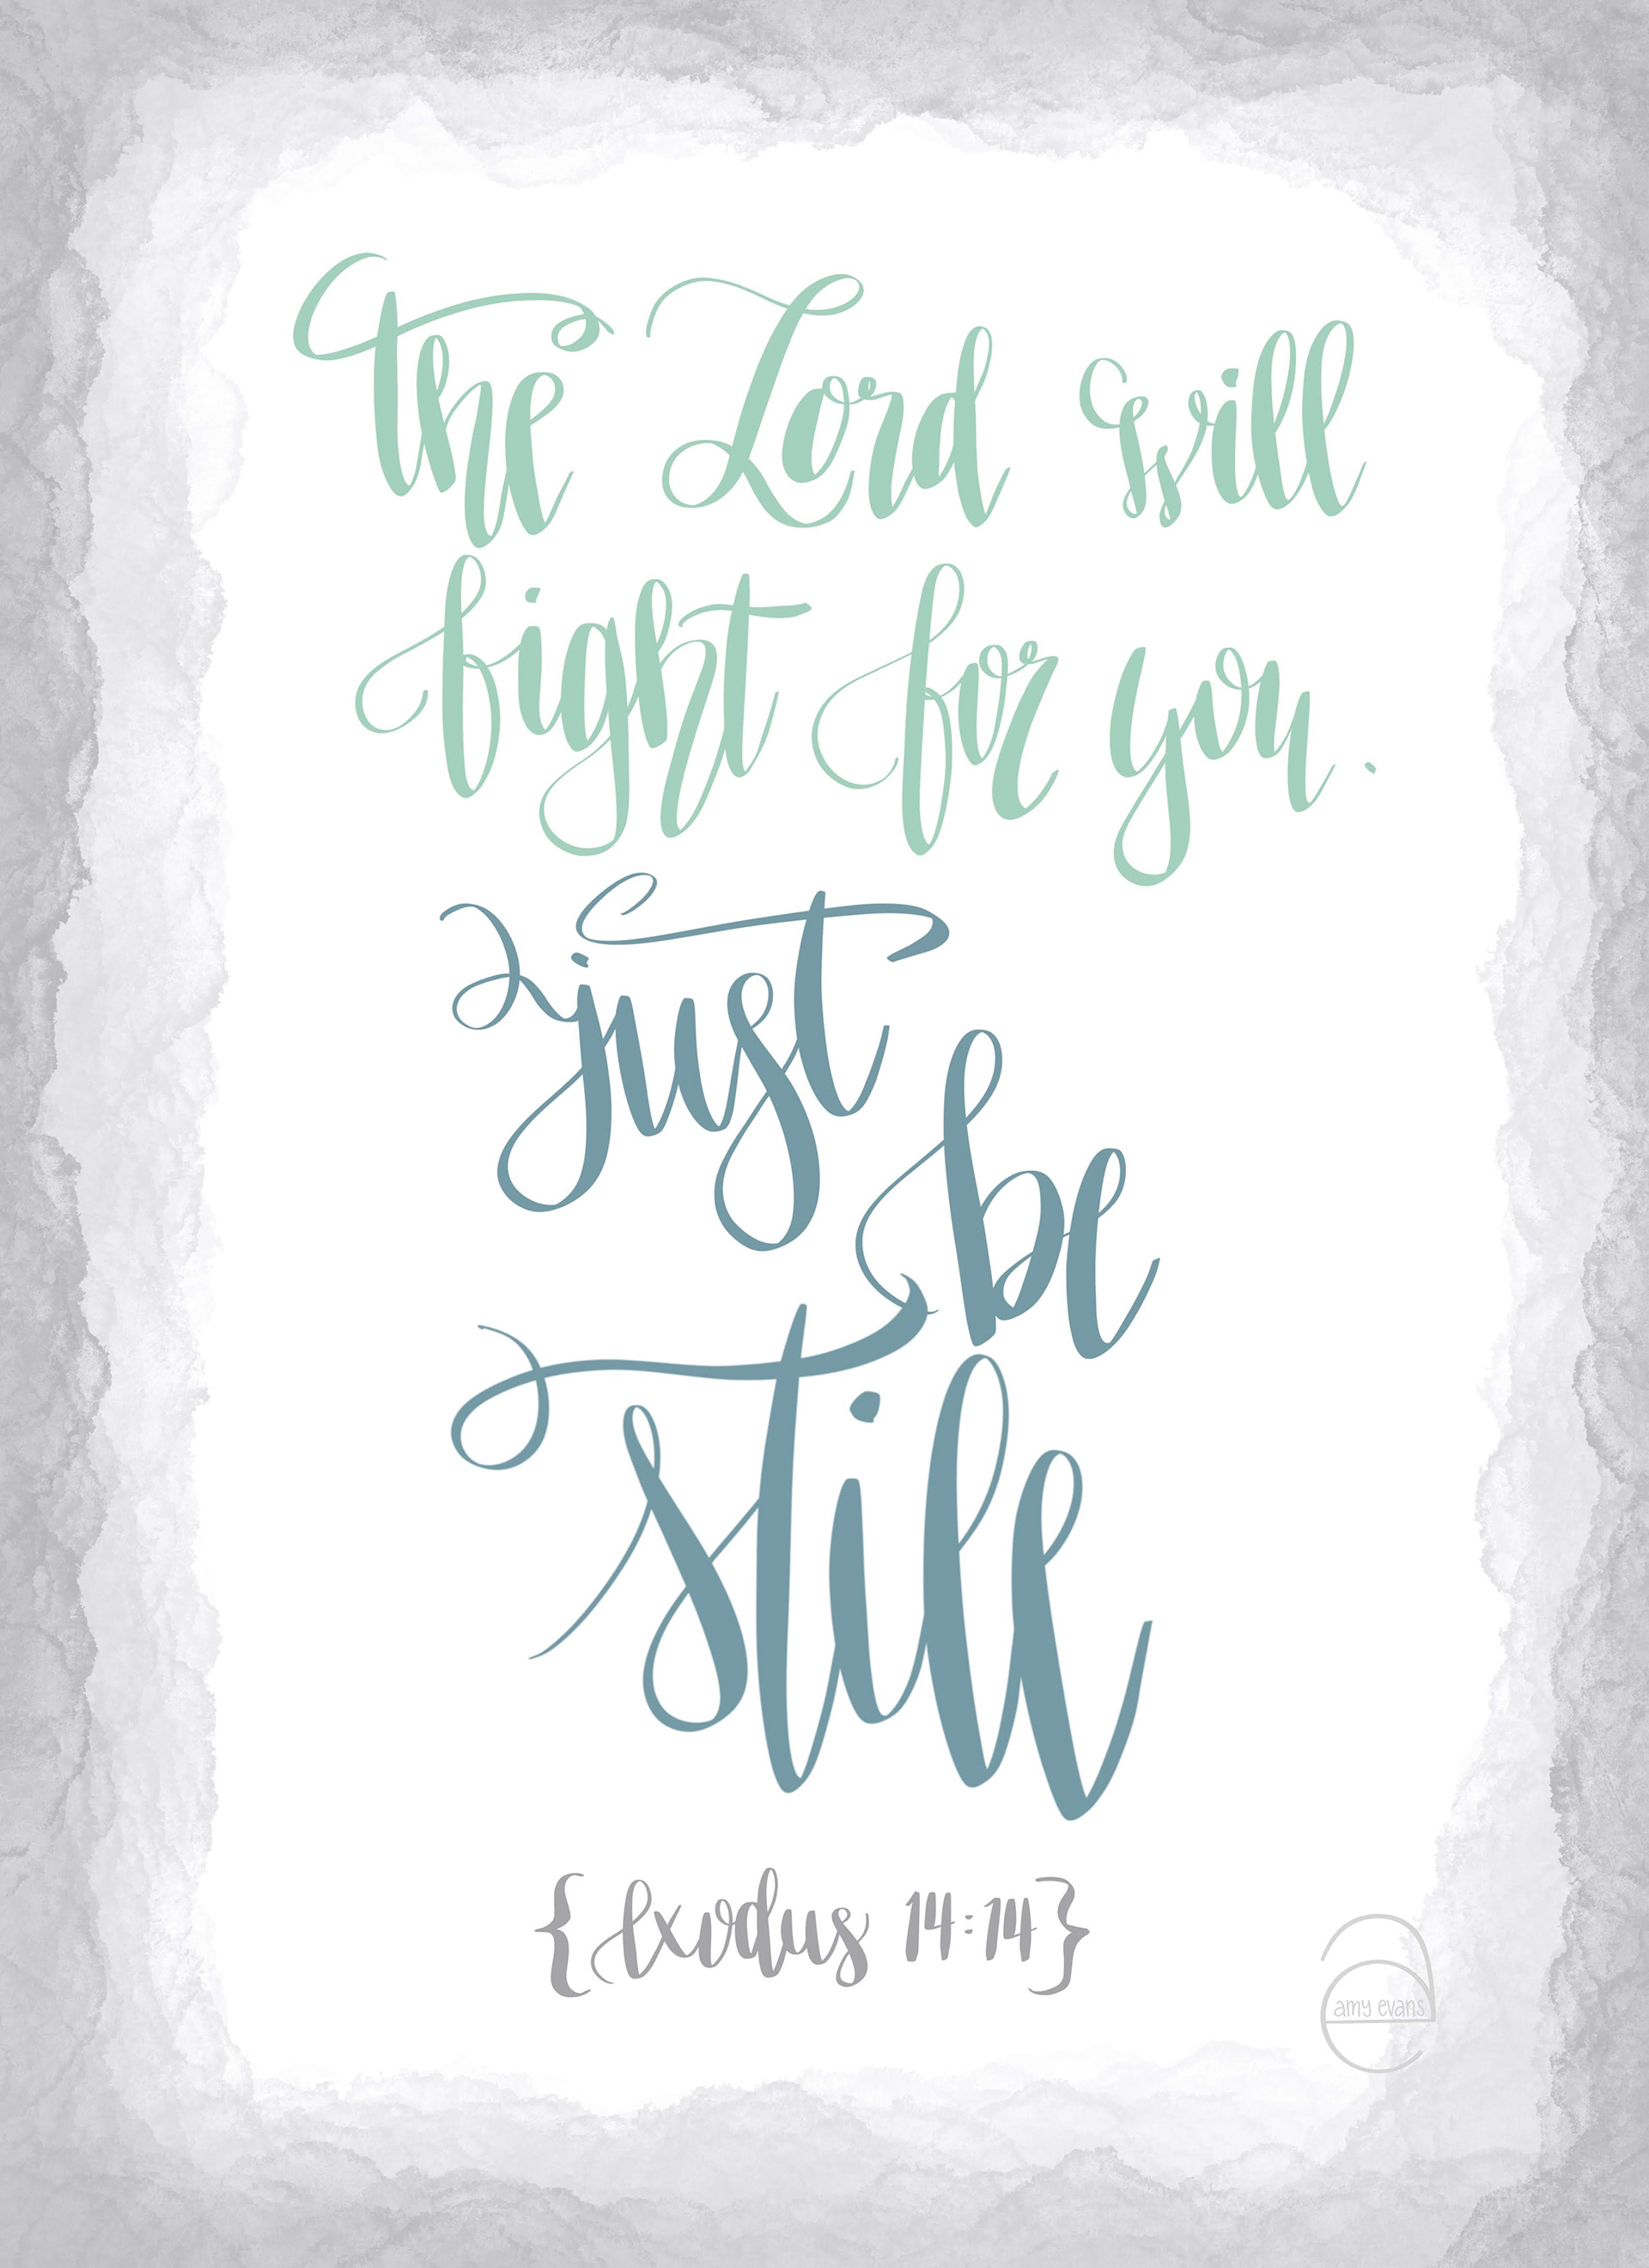 The Lord will
fight for you.
just
be
still
{Exodus 14:14}
amy evans